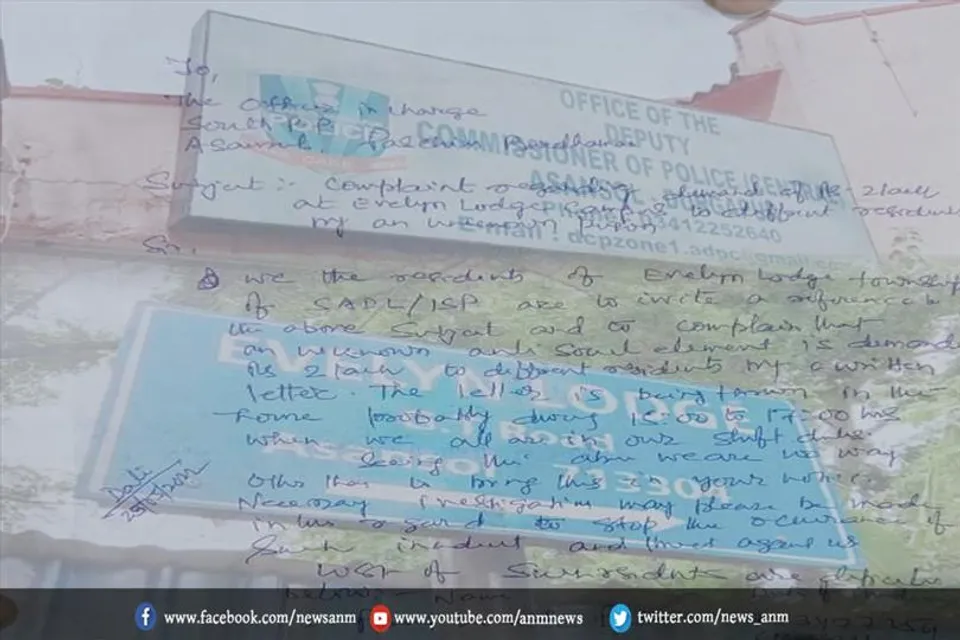 To,
The Officer in charge
South P.P.
Asansol. Paschim Bardhaman
Subject :- Complaint regarding demand of Rs-2 lakh
at Evelyn Lodge to different residents
by an unknown person
Sir,
We the residents of Evelyn Lodge township
of SADL/ISP are to invite a reference to
the above Subject and to complain that
an unknown anti Social element is demand
Rs 2 lakh to different residents by a written
letter. The letter is being thrown in the
Home probably during 15:00 to 17:00 hrs
when we all are in our shift duties.
Seeing the above we are no way
other than to bring this in your notice.
Necessary investigation may please be made
in this regard to stop the occurance of
Such incident and threat against us
List of Such residents are
Below - Name
Date
OFFICE OF THE
DEPUTY
COMMISSIONER OF POLICE (CENTRAL)
ASANSOL DURGAPUR
POLICE
03412252640
E-mail : dcpzone1.adpc@gmail.com
EVELYN LODGE
Asansol 713304
www.facebook.com/newsanm
www.youtube.com/anmnews
twitter.com/news_anm